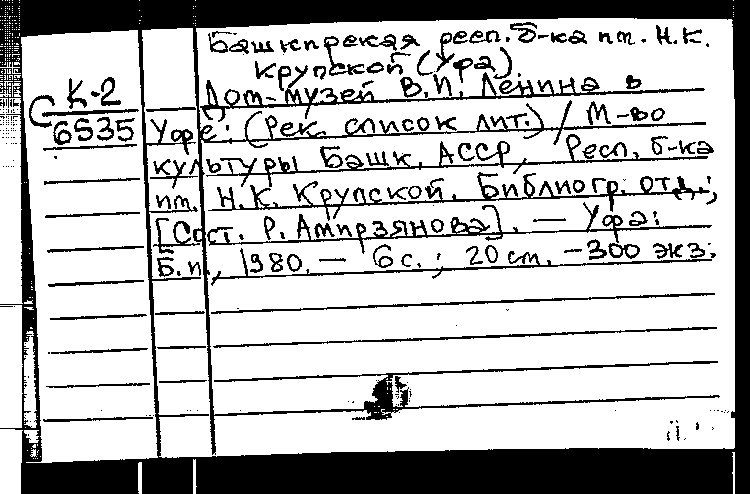 Башкирская респ. б-ка им. Н.К.
Крупской (Уфа).
К-2
Дом-музей В.И. Ленина в
С 6535
Уфе: (Рек. список лит.) / М-во
культуры Башк. АССР, Респ. б-ка
им. Н.К. Крупской. Библиогр. отд.;
[Сост. Р. Амирзянова]. — Уфа:
Б.и., 1980. — 6 с.; 20 см. — 300 экз.